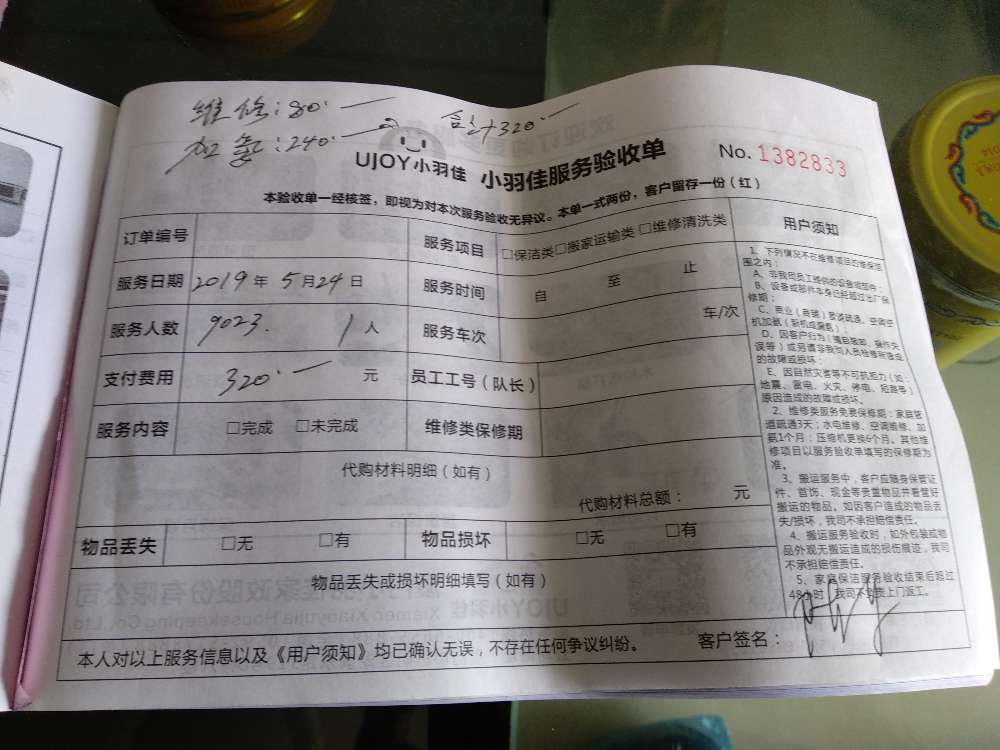 维修:80.一
加氨:240.一
合计320.一
UJOY小羽佳 小羽佳服务验收单
No.1382833
本验收单一经核签，即视为对本次服务验收无异议。本单一式两份，客户留存一份(红)
订单编号 服务项目 □保洁类□搬家运输类 □维修清洗类
服务日期 2019年 5月24日 服务时间 自 至 止
服务人数 9023. 1人 服务车次 车/次
支付费用 320.一 元 员工工号(队长)
服务内容 □完成 □未完成 维修类保修期
代购材料明细(如有)
代购材料总额： 元
物品丢失 □无 □有 物品损坏 □无 □有
物品丢失或损坏明细填写(如有)
本人对以上服务信息以及《用户须知》均已确认无误，不存在任何争议纠纷。
客户签名：
用户须知
1、下列情况不在维修项目的保保范
围之内：
A、非我司员工提供的设备或部件；
B、设备或部件本身已经超过出厂保
修期；
C、商业(商铺)管道疏通、空调空
机加氨(新机或漏氨)；
D、因客户行为(擅自拆卸、操作失
误等)或另请非我司人员检修所造成
的故障或损坏；
E、因自然灾害等不可抗拒力(如：
地震、雷电、火灾、停电、短路等)
原因造成的故障或损坏。
2、维修类服务免费保修期：家庭管
道疏通3天；水电维修、空调维修、加
氨1个月；压缩机更换6个月。其他维
修项目以服务验收单填写的保修期为
准。
3、搬运服务中，客户应随身保管证
件、首饰、现金等贵重物品并看管好
搬运的物品。如因客户造成的物品丢
失/损坏，我司不承担赔偿责任。
4、搬运服务验收时，如外包装或物
品外观无搬运造成的损伤痕迹，我司
不承担赔偿责任。
5、家庭保洁服务验收结束后超过
48小时，我司不负责上门返工。